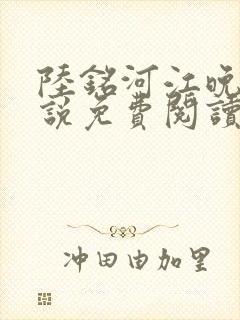 陸銘河江晚
說免費閱讀
冲田由加里